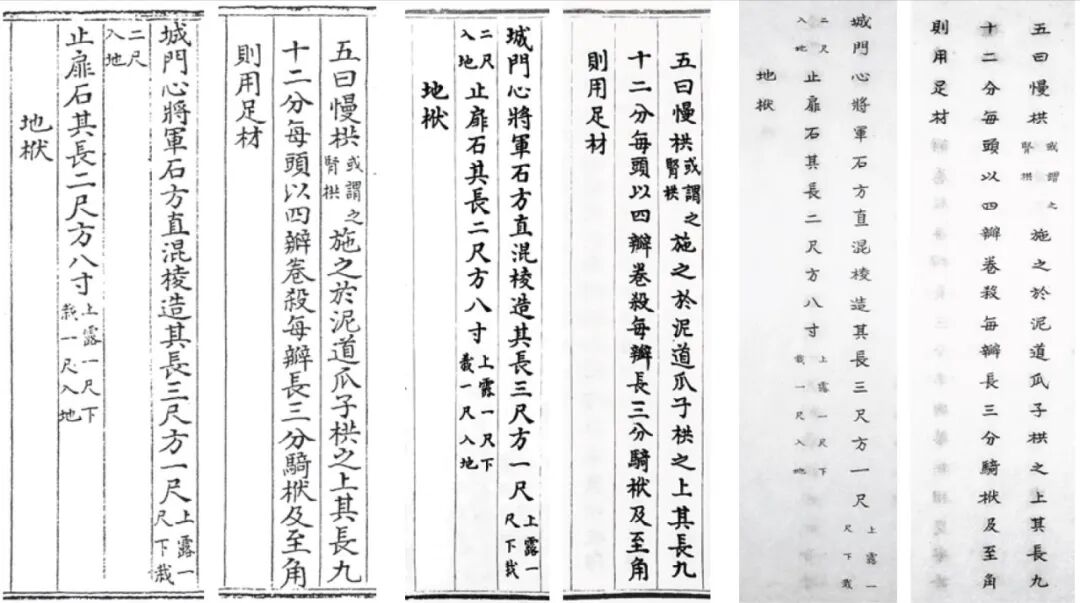 城門心將軍石方直混棱造其長三尺方一尺上露一尺下栽
二尺入地
止扉石其長二尺方八寸上露一尺下栽一尺入地
地栿
五曰慢栱或謂之腎栱施之於泥道瓜子栱之上其長九
十二分每頭以四瓣卷殺每瓣長三分騎栿及至角
則用足材
城門心將軍石方直混棱造其長三尺方一尺上露一尺下栽
二尺入地止扉石其長二尺方八寸上露一尺下栽一尺入地
地栿
五曰慢栱或謂之腎栱施之於泥道瓜子栱之上其長九
十二分每頭以四瓣卷殺每瓣長三分騎栿及至角
則用足材
城門心將軍石方直混棱造其長三尺方一尺上露一尺下栽
二尺入地止扉石其長二尺方八寸上露一尺下栽一尺入地
地栿
五曰慢栱或謂之腎栱施之於泥道瓜子栱之上其長九
十二分每頭以四瓣卷殺每瓣長三分騎栿及至角
則用足材